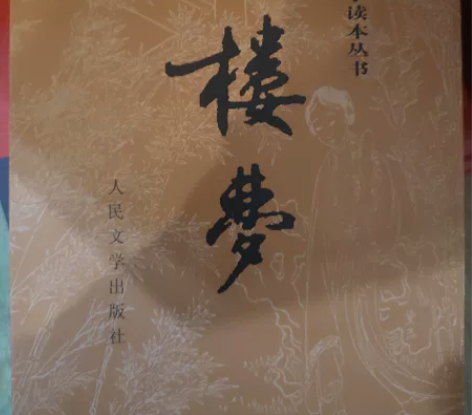 读本丛书
楼梦
人民文学出版社